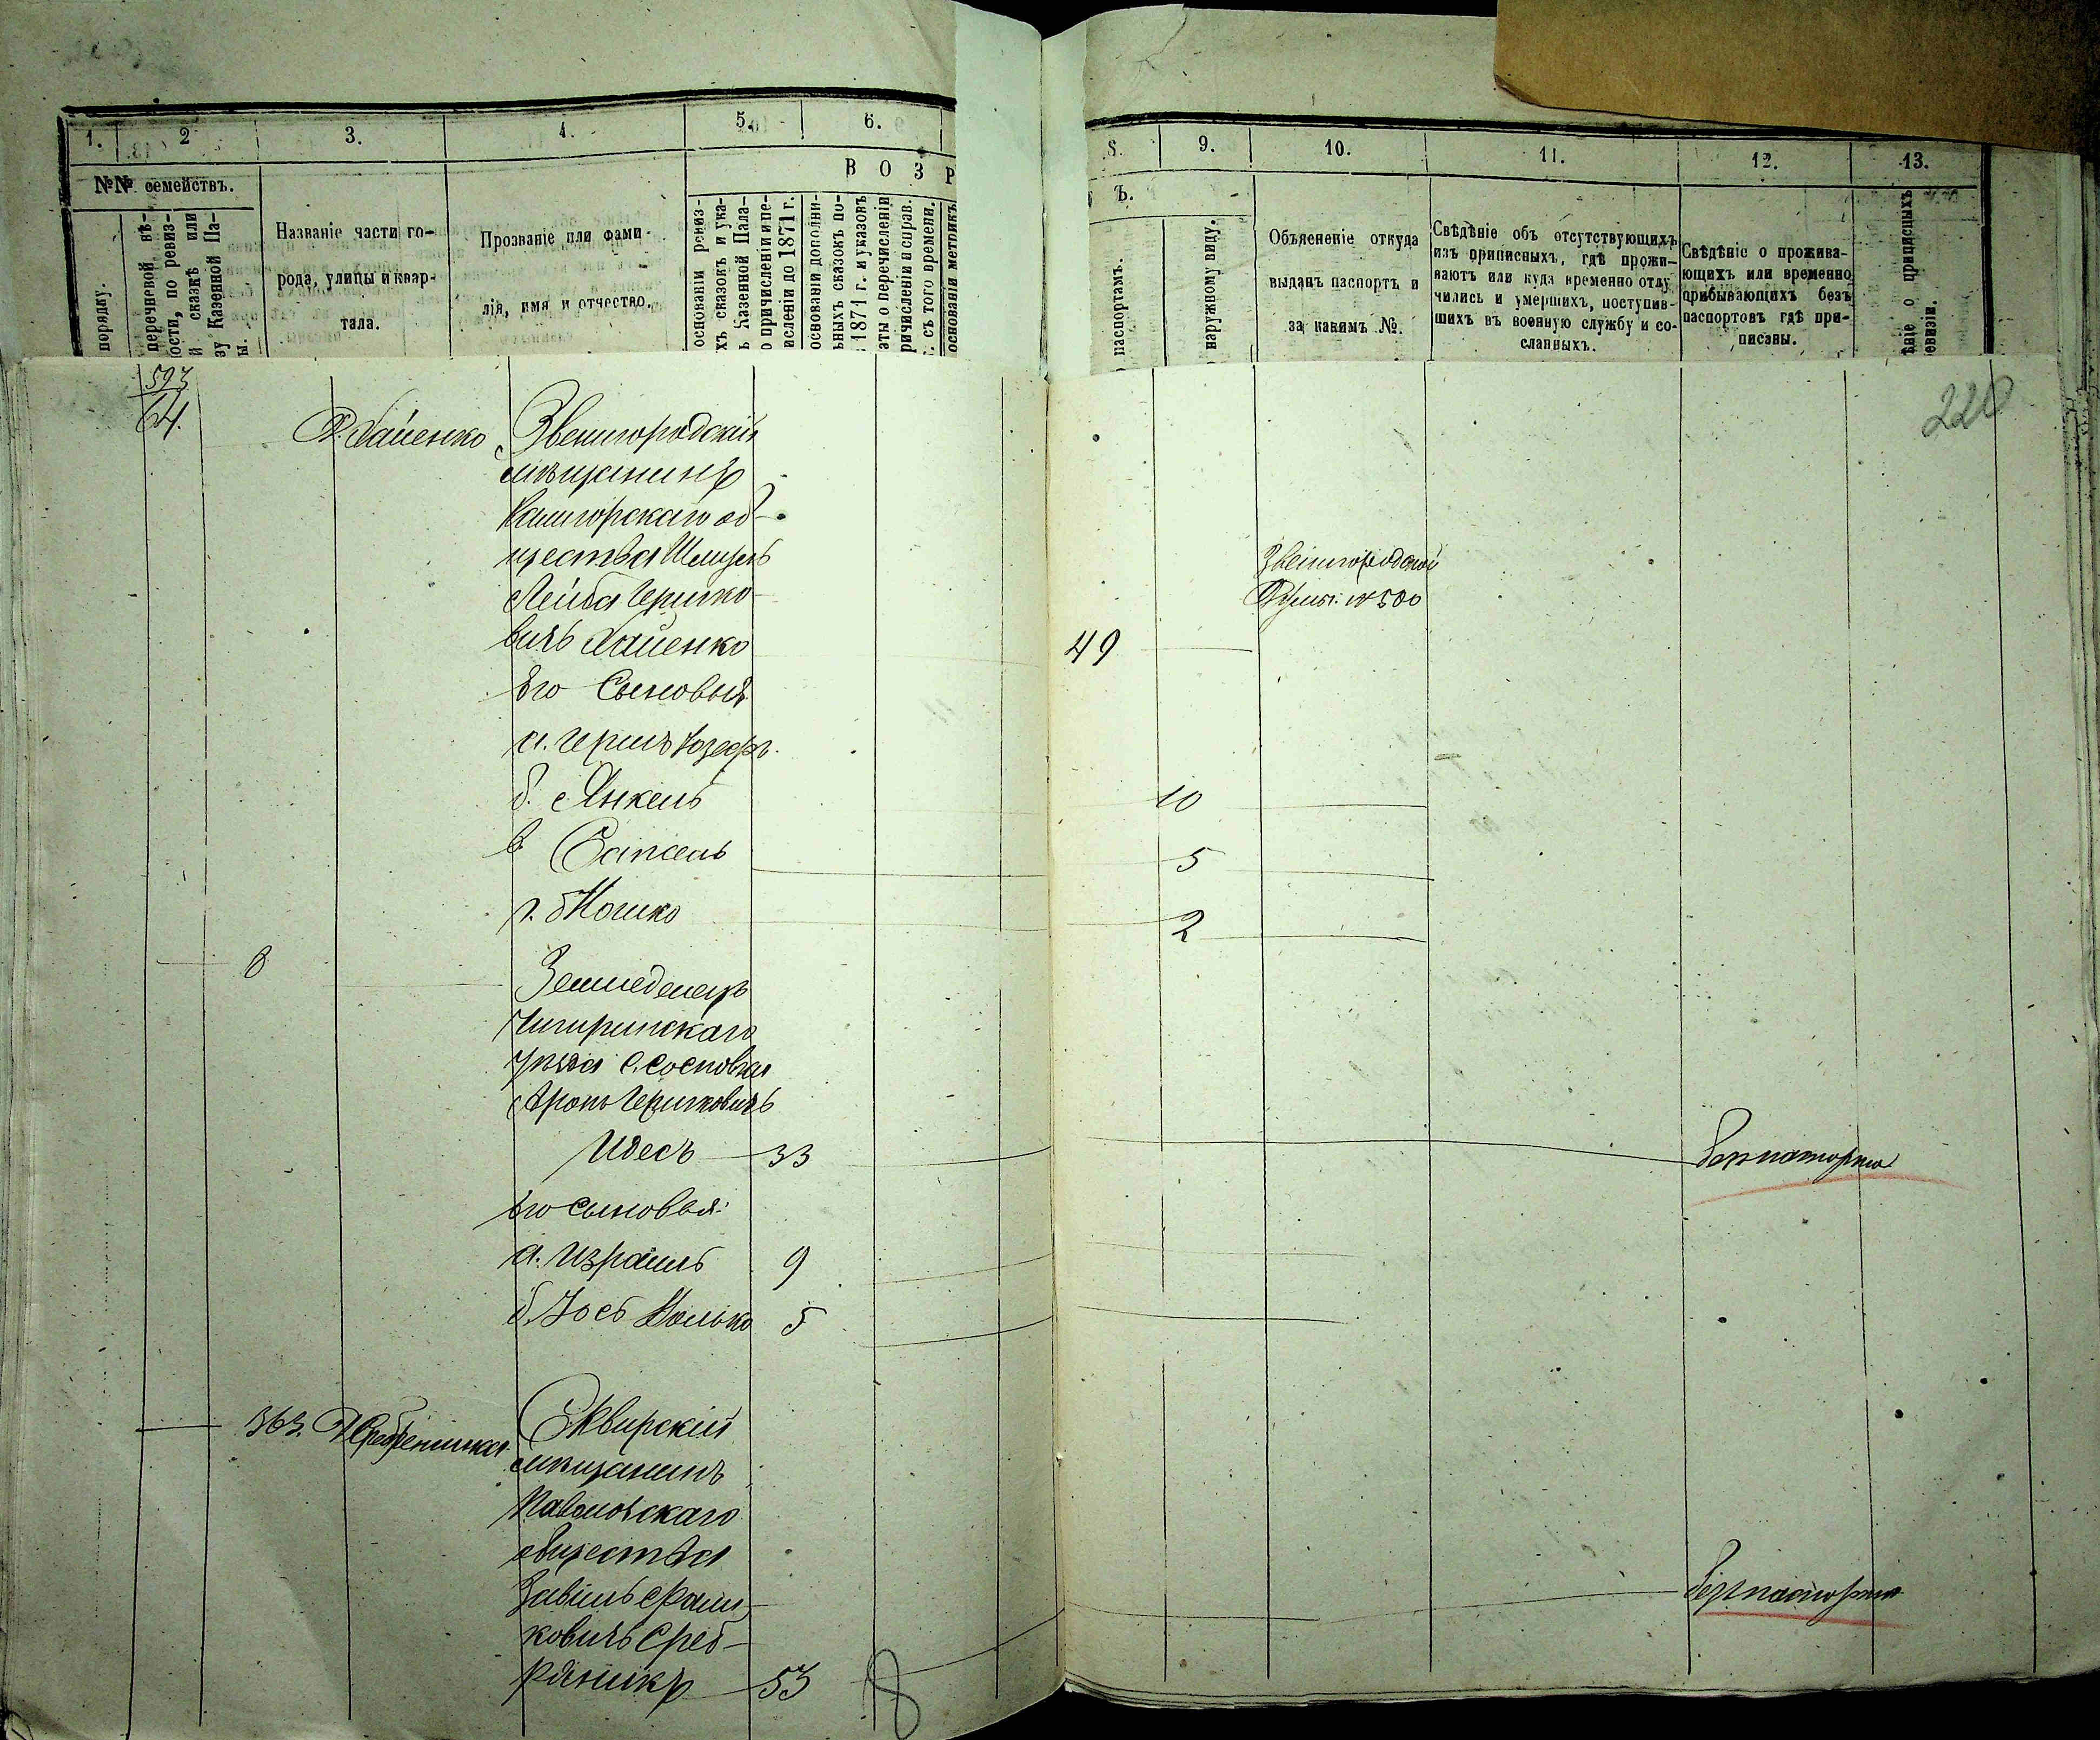 1.
2
3.
4.
5.
6.
В О З Р
№№ семействъ.
порядку.
перечневой вѣ-
ости, по ревиз-
й сказкѣ или
зу Казенной Па-
ы.
Названіе части го-
рода, улицы и квар-
тала.
Прозваніе или фами-
лія, имя и отчество.
основаніи ревиз-
хъ сказокъ и ука-
ъ Казенной Пала-
о причисленіи и пе-
исленіи до 1871 г.
основаніи дополни-
ьныхъ сказокъ по-
1871 г. и указовъ
аты о перечисленіи
ричисленіи и справ.
съ того времени.
основаніи метрикъ
8.
9.
10.
11.
12.
13.
Ъ.
паспортамъ.
наружному виду.
Объясненіе откуда
выданъ паспортъ и
за какимъ №.
Свѣдѣніе объ отсутствующихъ
изъ приписныхъ, гдѣ прожи-
ваютъ или куда временно отлу
чились и умершихъ, поступив-
шихъ въ военную службу и со-
сланныхъ.
Свѣдѣніе о прожива-
ющихъ или временно
прибывающихъ безъ
паспортовъ гдѣ при-
писаны.
ѣніе о приписныхъ
евизіи.
220
593
64.
Звенигородскій
мѣщанинъ
общества
Лейба Гершко-
вичъ
49
Звенигородской
Думы. № 500
Его Сыновья
а. Гершъ Іозефъ.
б. Янкель 10
в 5
г. Йошко 2
8
Земледелецъ
Чигиринскаго
уѣзда с. Сосновка
Аронъ Гершковичъ
Идесъ 33
безпаспортно
Его сыновья:
а. Израиль 9
б. Іось 5
363.
Сквирскій
мѣщанинъ
Паволочскаго
общества
ковичъ Среб-
ряникъ 53
безпаспортно
8